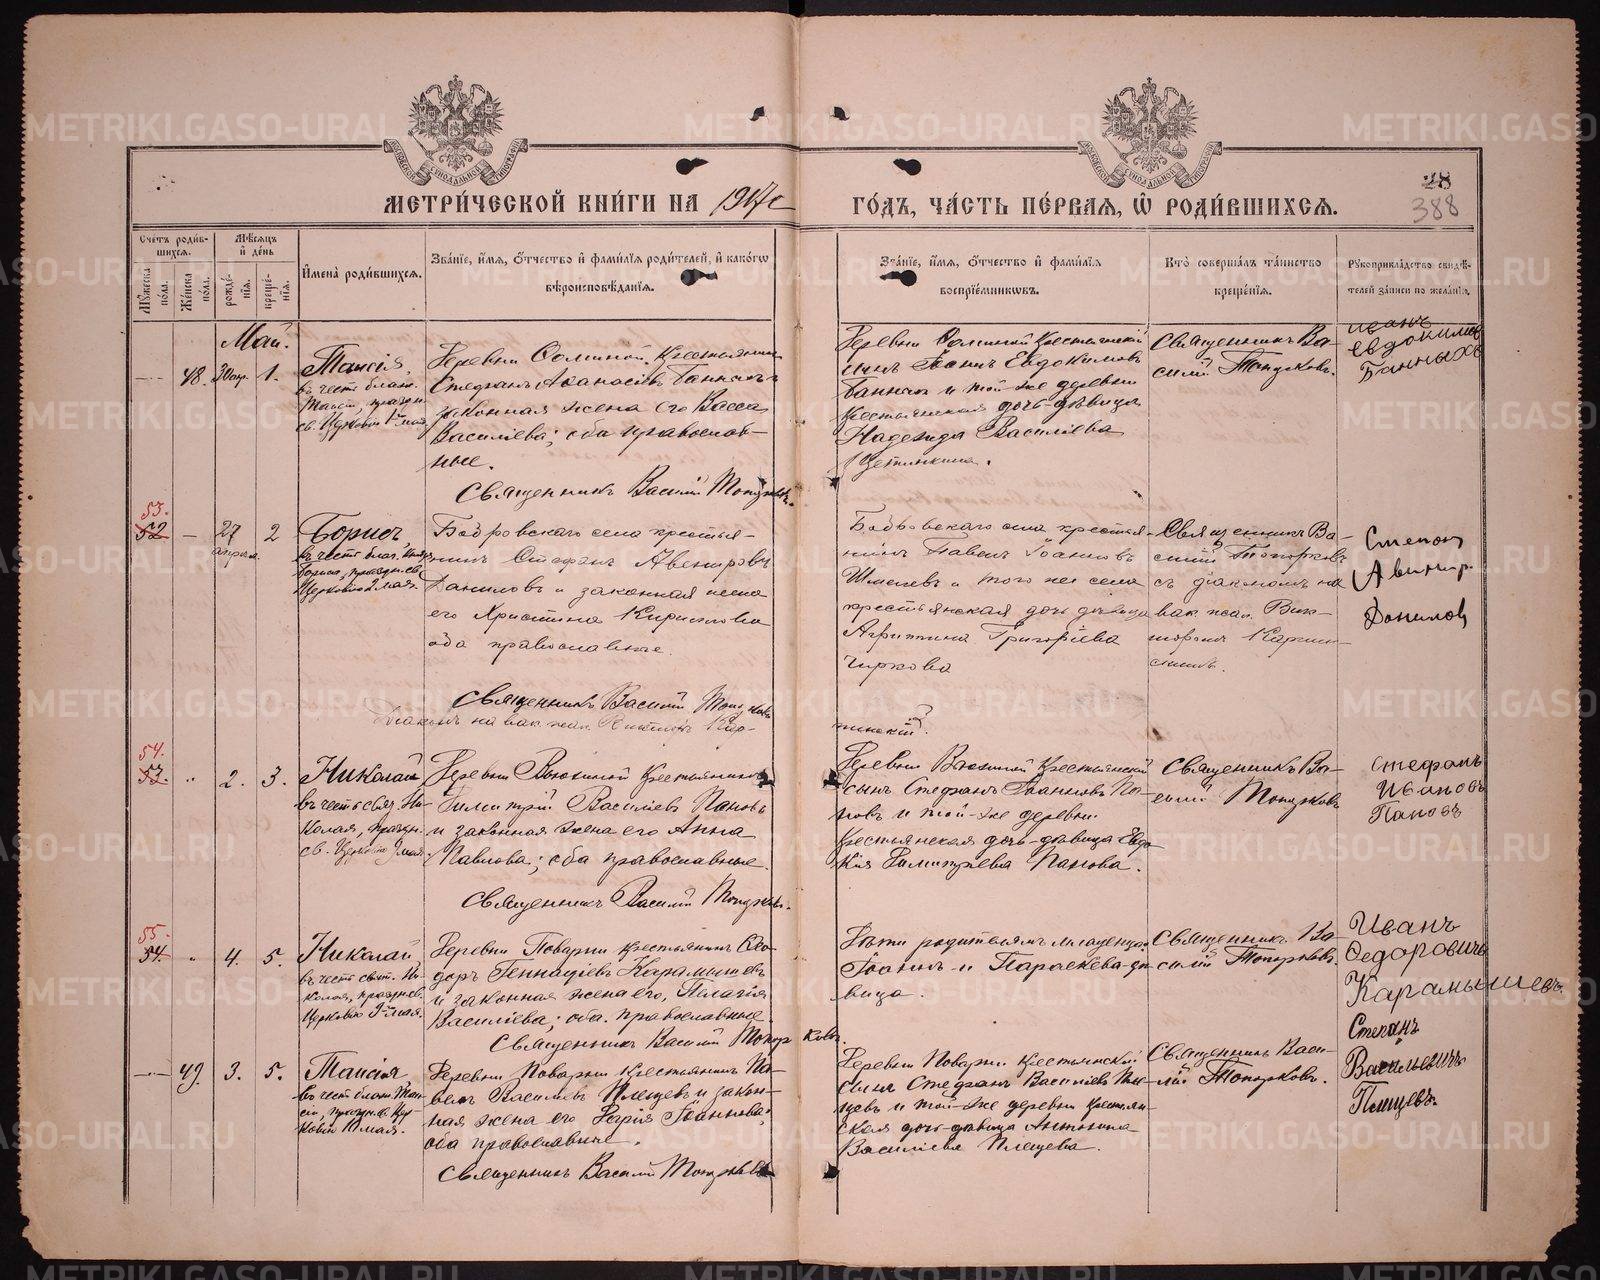 МЕТРИ́ЧЕСКОЙ КНИ́ГИ НА 1917й
ГО́ДЪ, ЧА́СТЬ ПЕ́РВАЯ, Ѡ҆ РОДИ́ВШИХСЯ.
28
388
Сче́тъ роди́в-
шихся.
Мꙋ́жеска
по́ла.
Же́нска
по́ла.
Мѣ́сяцъ
и҆ де́нь
рожде́-
нїя.
креще́-
нїя.
И҆мена̀ роди́вшихся.
Зва́нїе, и҆́мя, ѻ҆́тчество и҆ фами́лїя роди́телей, и҆ како́гѡ
вѣроисповѣ́данїя.
Зва́нїе, и҆́мя, ѻ҆́тчество и҆ фами́лїя
воспрїе́мникѡвъ.
Кто̀ соверша́лъ та́инство
креще́нїя.
Рꙋкоприкла́дство свидѣ́-
телей за́писи по жела́нїю.
Май.
48. 30 апр. 1.
Таисія,
въ честь блаж.
Таисіи, праздн.
св. Церковію 1го мая
Деревни Соминой Крестьянинъ
Стефанъ Аѳанасіевъ Банныхъ и
законная жена его Васса
Васильева; оба православ-
ные.
Священникъ Василій Топорковъ.
Деревни Соминой Крестьянскій
сынъ Іоаннъ Евдокимовъ
Банныхъ и той-же деревни
Крестьянская дочь-дѣвица
Надежда Васильева
Щетинкина.
Священникъ Ва-
силій Топорковъ.
Иванъ
Евдокимов
Банныхъ
53.
52 — 27 апреля 2
Борисъ
въ честь благ. князя
Бориса, празднов.
Церковію 2 мая.
Бобровскаго села крестья-
нинъ Стефанъ Авенировъ
Даниловъ и законная жена
его Христина Кирилова
оба православные.
Священникъ Василій Топорковъ
Діаконъ на вак. псал. Викторъ Кар-
пинскій.
Бобровскаго села крестья-
нинъ Павелъ Іоанновъ
Шмелевъ и того же села
крестьянская дочь дѣвица
Агрипина Григорьева
Чиркова
Священникъ Ва-
силій Топорковъ
съ діакономъ на
вак. псал. Вик-
торомъ Карпин-
скимъ.
Степон
Авинир.
Донилов
54.
53. " 2. 3.
Николай
въ честь свят. Ни-
колая, праздн.
св. Церковію 9 мая.
Деревни Вьюхиной Крестьянинъ
Димитрій Васильевъ Пановъ
и законная жена его Анна
Павлова; оба православные.
Священникъ Василій Топорковъ.
Деревни Вьюхиной Крестьянскій
сынъ Стефанъ Іоанновъ Па-
новъ и той-же деревни
Крестьянская дочь-дѣвица Евдо-
кія Димитріева Панова.
Священникъ Ва-
силій Топорковъ
Стефанъ
Ивановъ
Пановъ
55.
54. " 4. 5.
Николай,
въ честь свят. Ни-
колая, празднов.
Церковію 9го мая.
Деревни Поварни крестьянинъ Ѳео-
доръ Геннадіевъ Карамышевъ
и законная жена его, Пелагія
Васильева; оба православные.
Священникъ Василій Топорковъ.
Дѣти родителямъ младенца:
Іоаннъ и Параскева-дѣ-
вица.
Священникъ Ва-
силій Топорковъ.
Иванъ
Ѳедоровичъ
Карамышевъ.
— 49. 3. 5.
Таисія
въ честь блаж. Таи-
сіи, празднов. Цер-
ковію 10 мая.
Деревни Поварни крестьянинъ Па-
велъ Васильевъ Плещевъ и закон-
ная жена его Дарія Іоаннова;
оба православные.
Священникъ Василій Топорковъ
Деревни Поварни Крестьянскій
сынъ Стефанъ Васильевъ Пле-
щевъ и той-же деревни Крестьян-
ская дочь-дѣвица Антонина
Васильева Плещева.
Священникъ Васи-
лій Топорковъ.
Степанъ
Васильевичъ
Плещевъ.